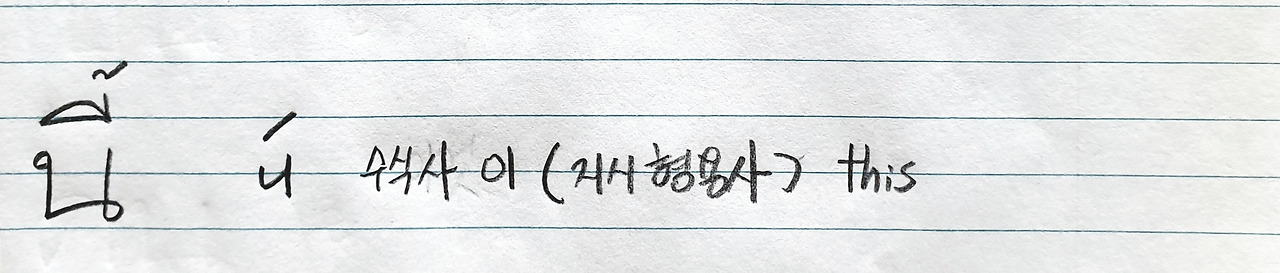 นี้ 니́ 수식사 이 (지시형용사) this